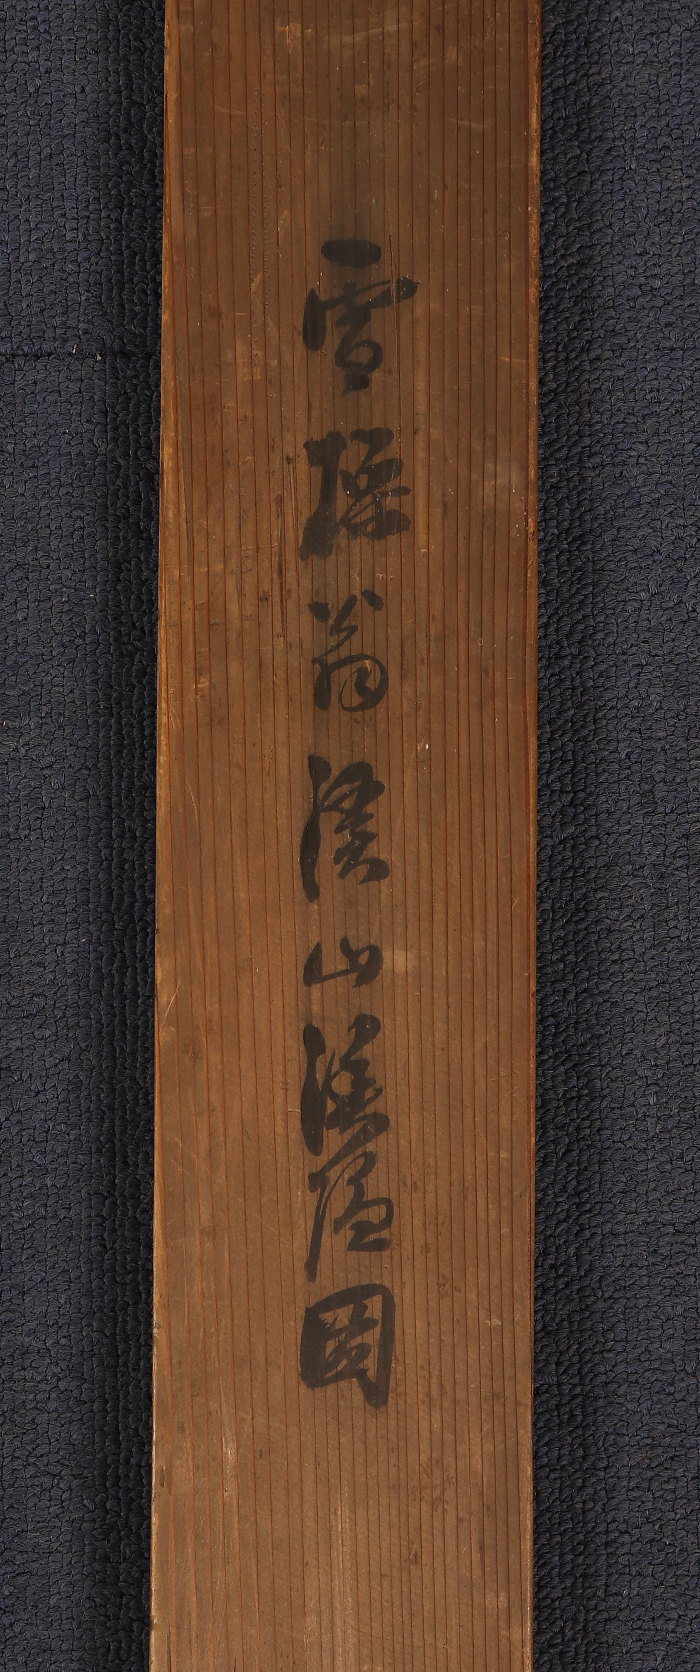 雪操翁溪山漁隱圖